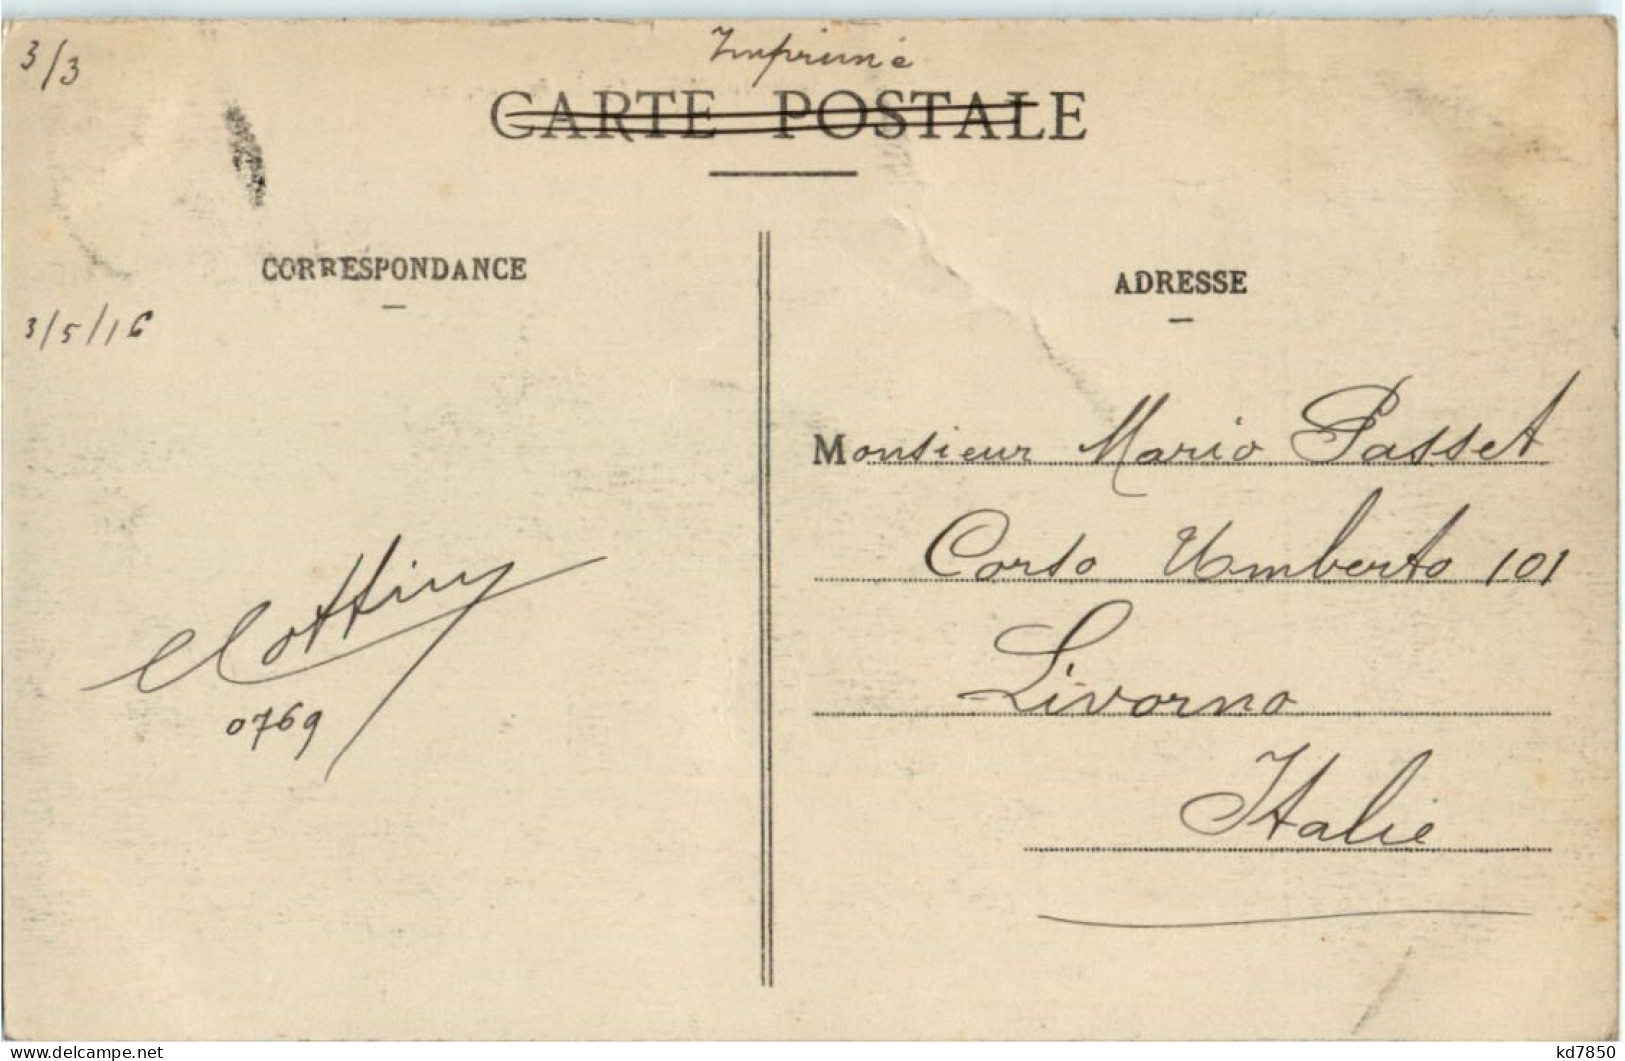 3/3
Imprimé
CARTE POSTALE
CORRESPONDANCE
ADRESSE
3/5/16
Monsieur Mario Passet
Corso Umberto 101
Livorno
Italie
Cottin
0769
delcampe.net
kd7850